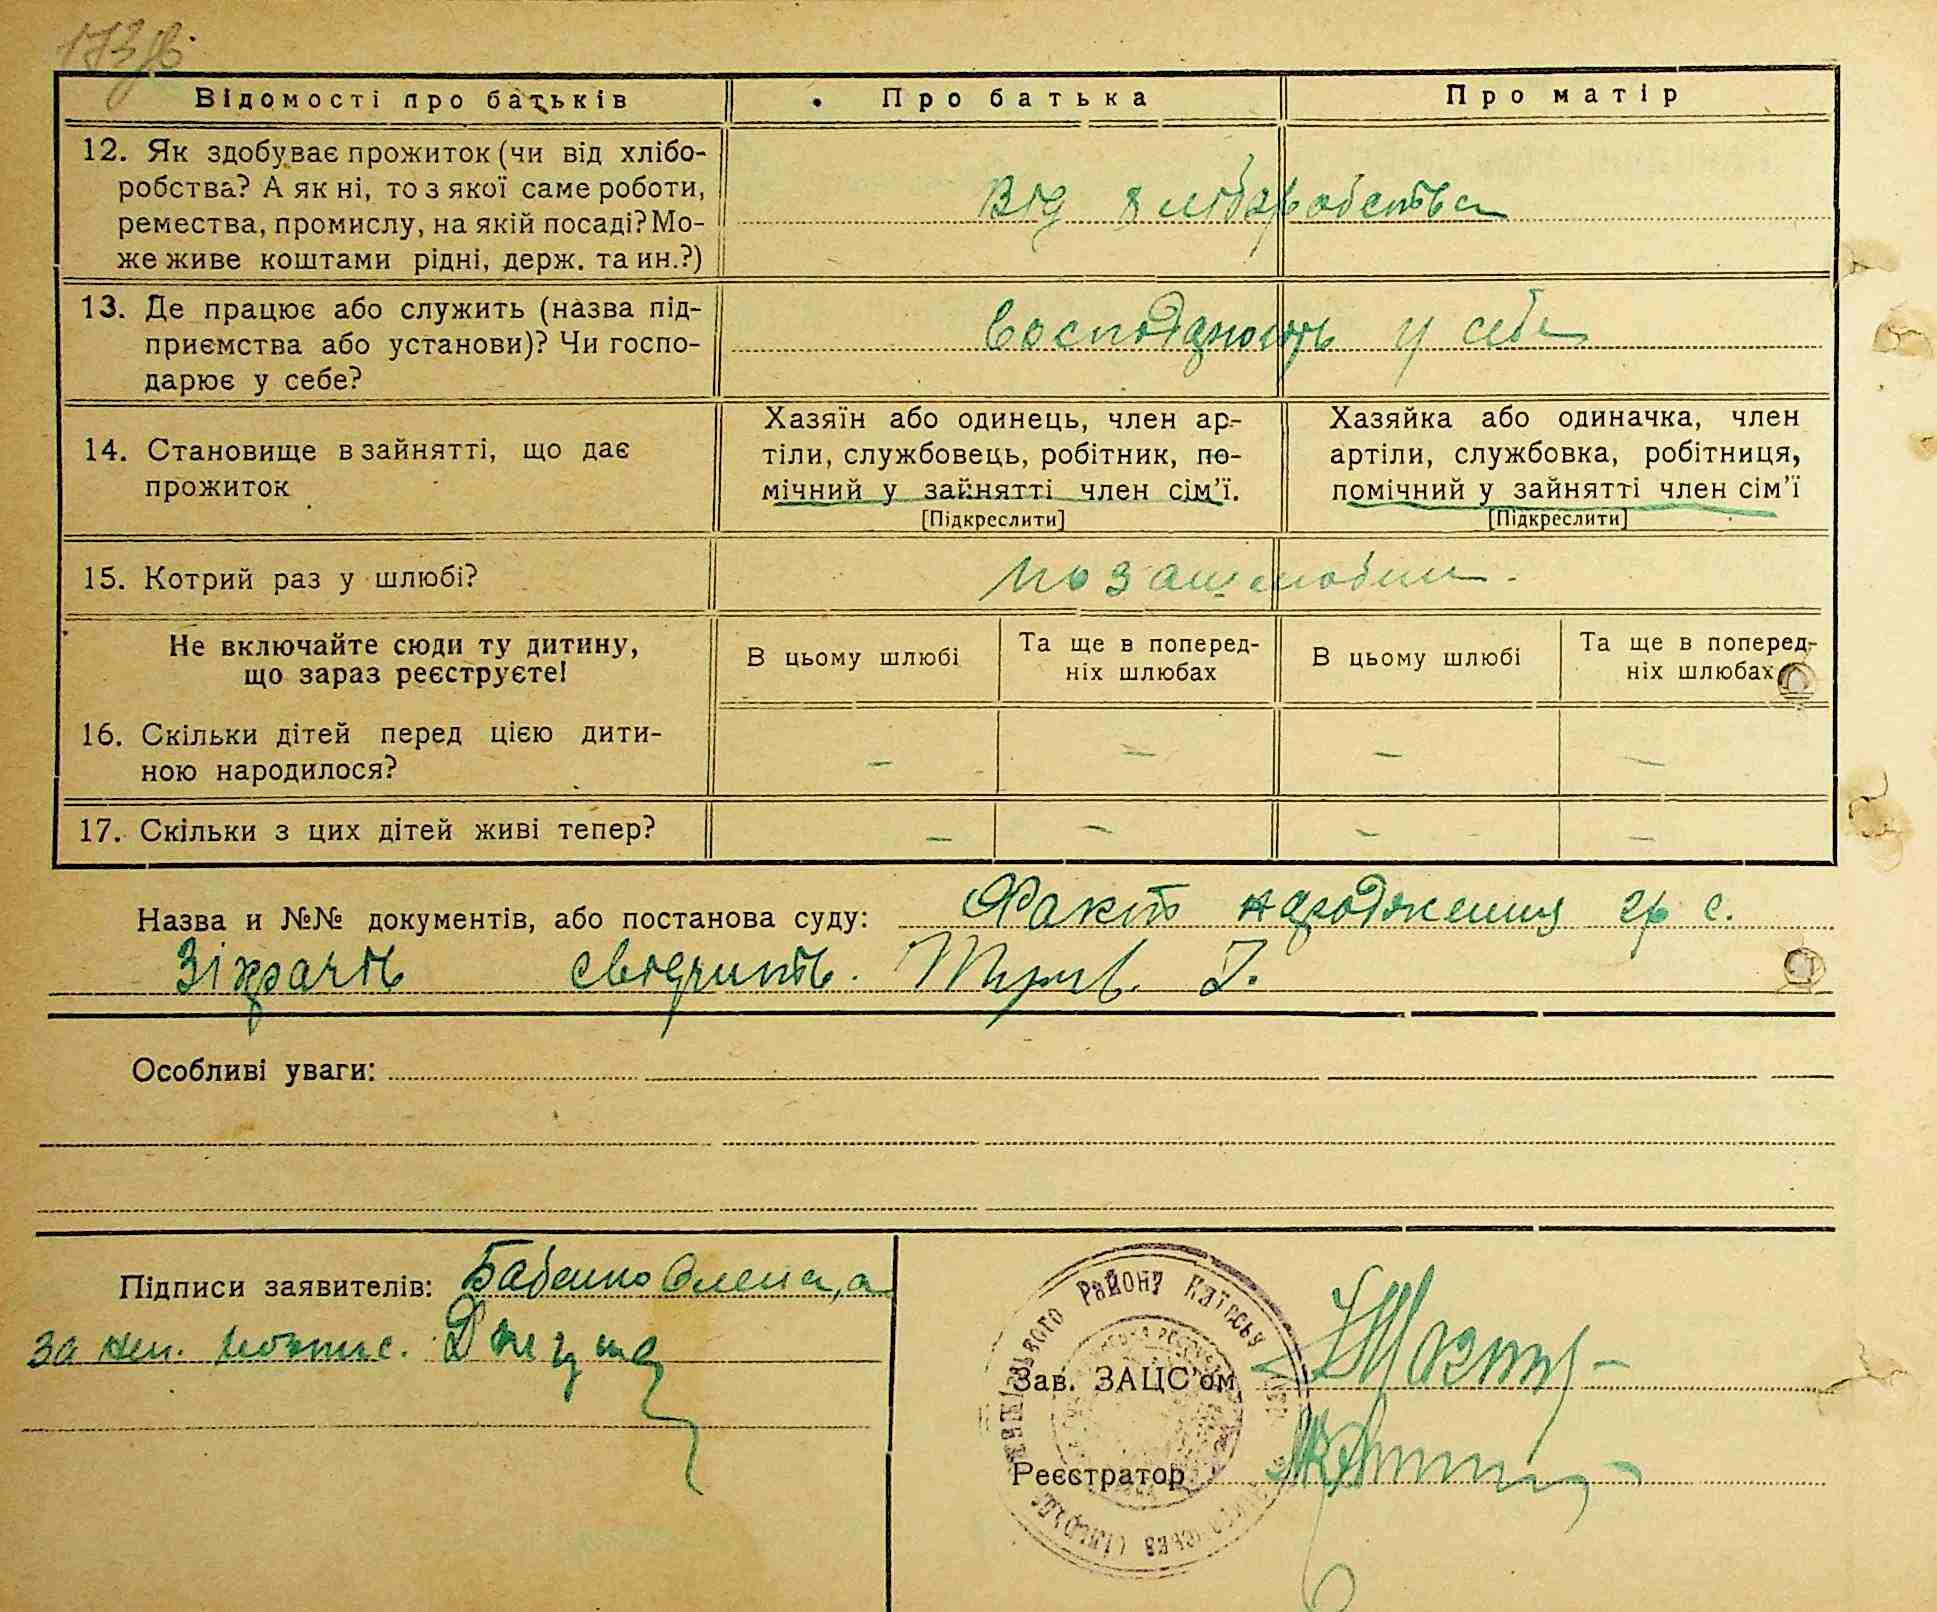 173зв
Відомості про батьків
Про батька
Про матір
12. Як здобуває прожиток (чи від хлібо-
робства? А як ні, то з якої саме роботи,
ремества, промислу, на якій посаді? Мо-
же живе коштами рідні, держ. та ин.?)
Від хліборобства
13. Де працює або служить (назва під-
приємства або установи)? Чи госпо-
дарює у себе?
у себе
14. Становище в зайнятті, що дає
прожиток
Хазяїн або одинець, член ар-
тіли, службовець, робітник, по-
мічний у зайнятті член сім'ї.
[Підкреслити]
Хазяйка або одиначка, член
артіли, службовка, робітниця,
помічний у зайнятті член сім'ї
[Підкреслити]
15. Котрий раз у шлюбі?
Не включайте сюди ту дитину,
що зараз реєструєте!
В цьому шлюбі
Та ще в поперед-
ніх шлюбах
В цьому шлюбі
Та ще в поперед-
ніх шлюбах
16. Скільки дітей перед цією дити-
ною народилося?
– – – –
17. Скільки з цих дітей живі тепер?
– – – –
Назва и №№ документів, або постанова суду: Факт народження гр с.
свідчить. Т. І.
Особливі уваги:
Підписи заявителів: Бабенко Олена, а
за неп. розпис.
Району Київськ
Зав. ЗАЦС'ом
Реєстратор